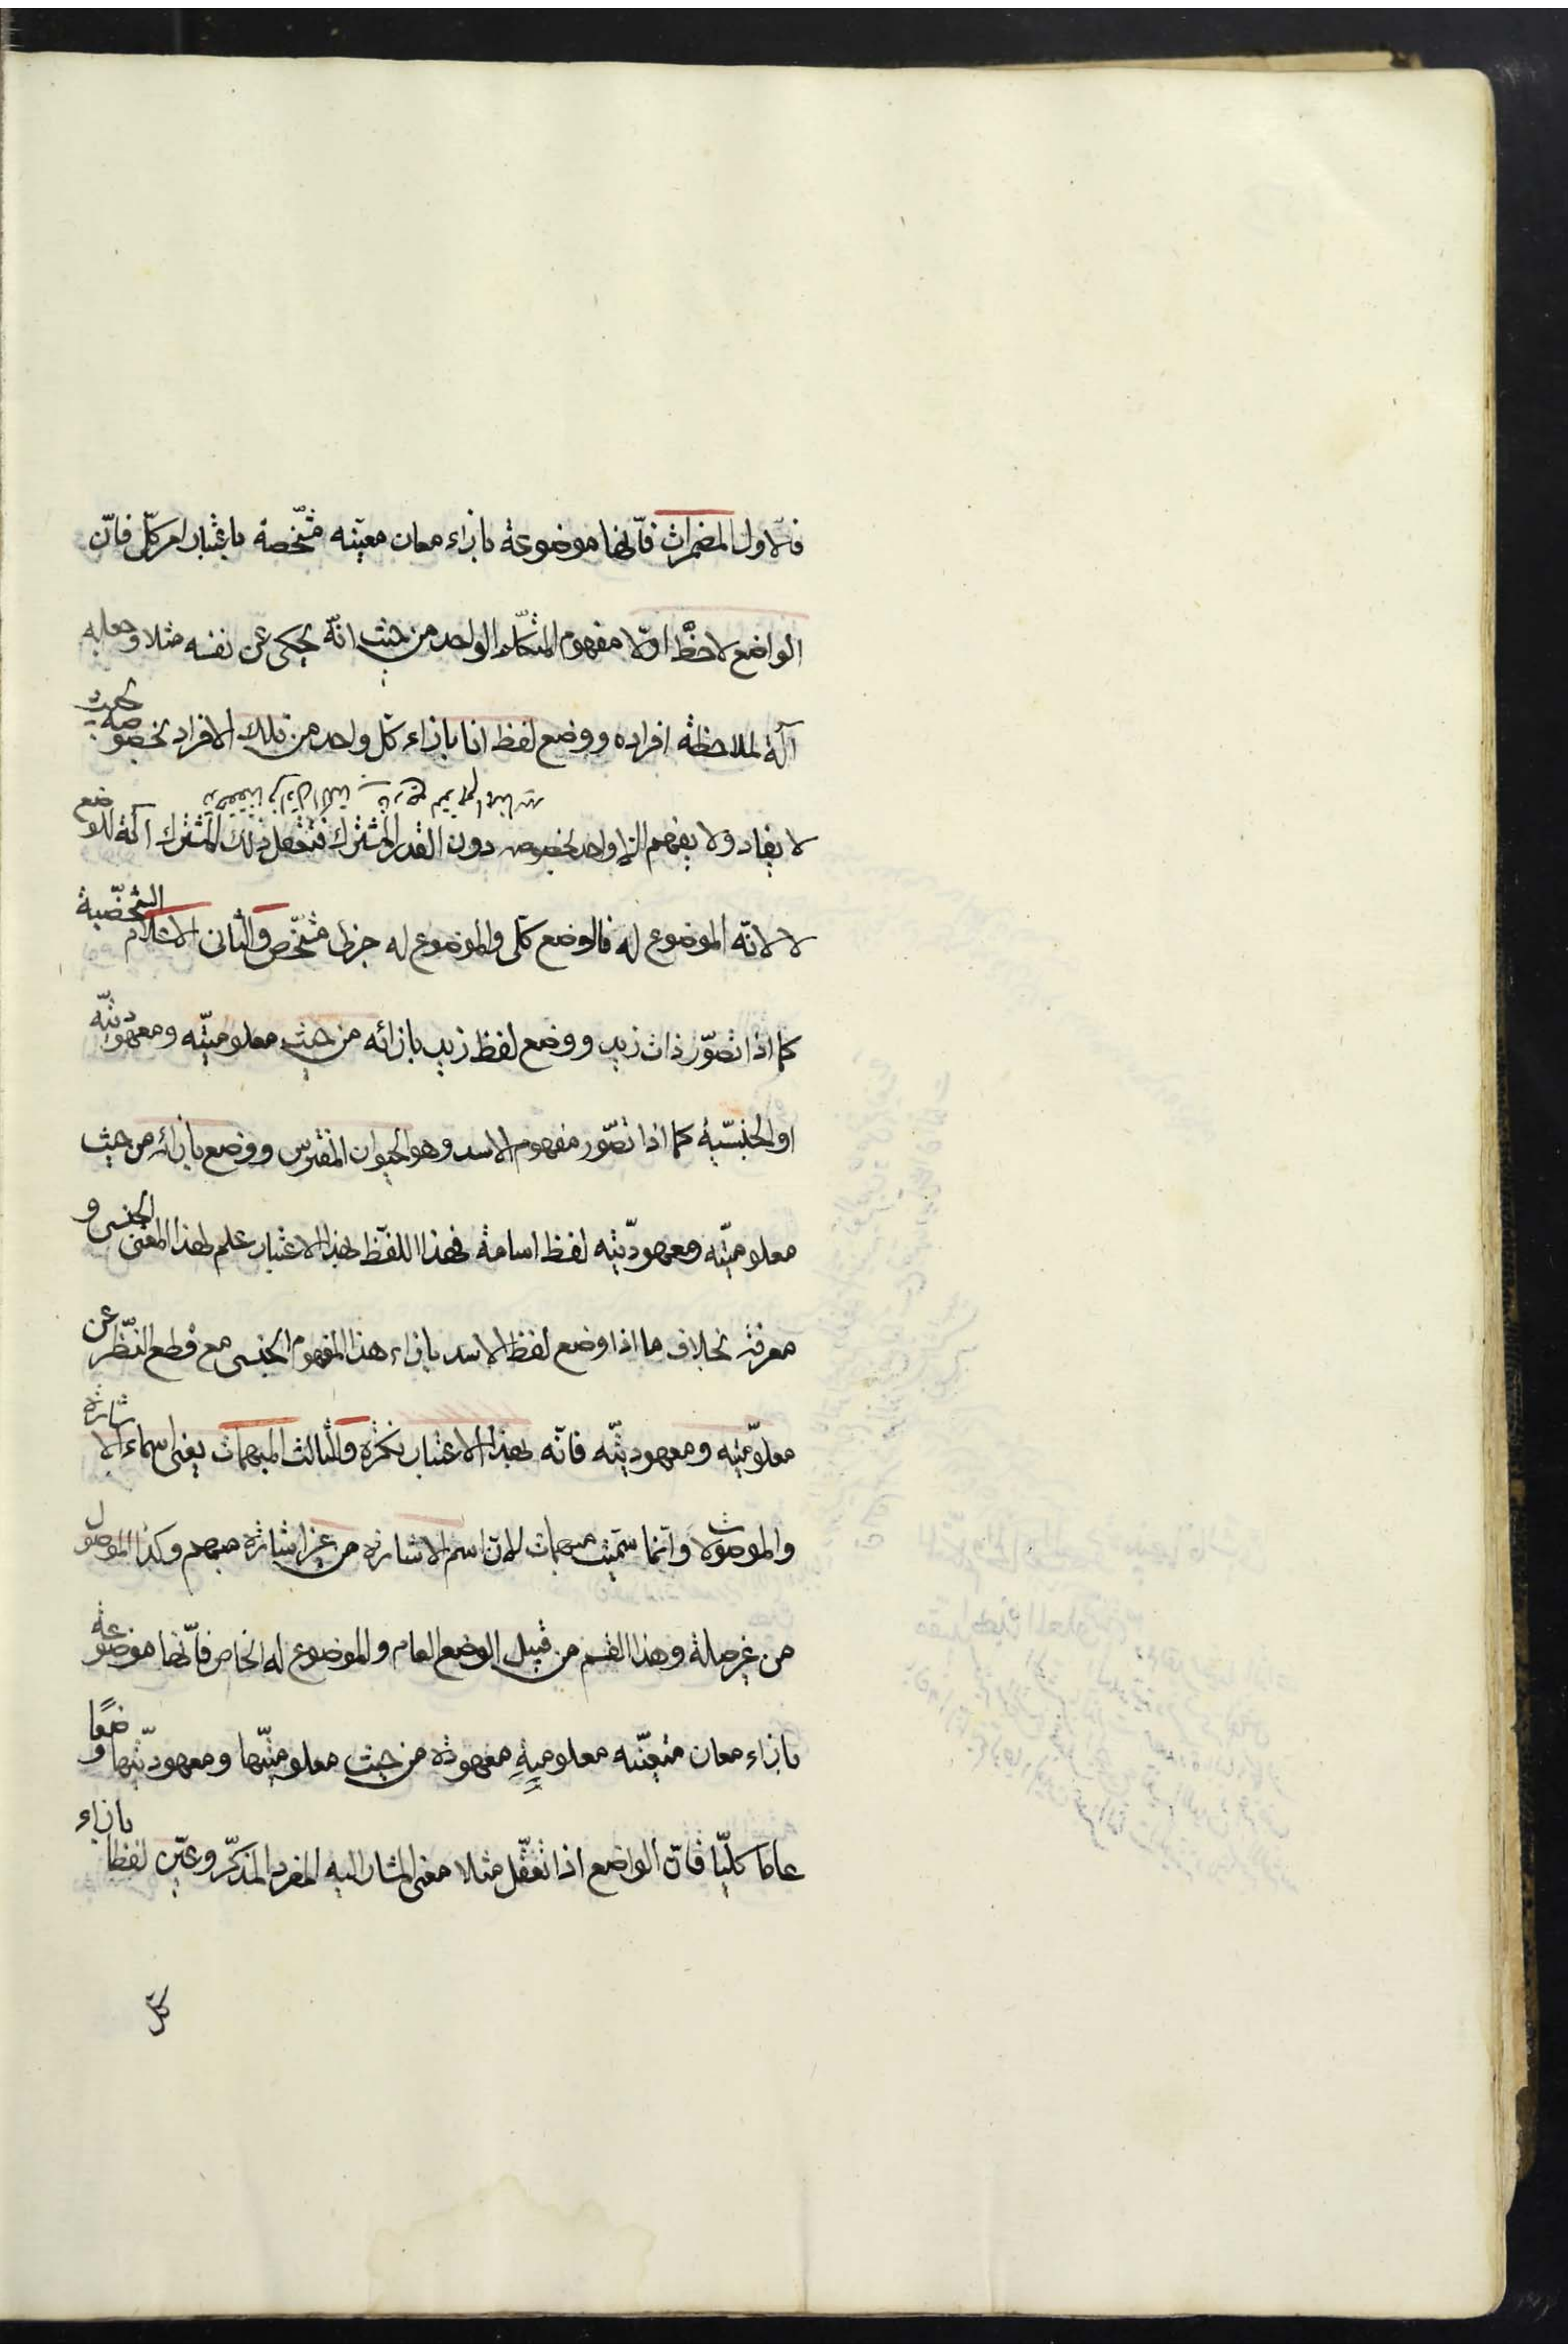 فالاول المضمرات فانّها موضوعة بازاء معان معيّنه مشخّصة باعتبار امر كلّى فانّ
الواضع لاحظ اوّلا مفهوم المتكلّم الواحد من حيث انّه يحكى عن نفسه مثلا وجعله
آلة لملاحظة افراده ووضع لفظ انا بازاء كلّ واحد من تلك الافراد بخصوصه بحيث
لا يفاد ولا يفهم الّا واحد بخصوصه دون القدر المشترك فتعقّل ذلك المشترك آلة للوضع
لا لانّه الموضوع له فالوضع كلّى والموضوع له جزئى مشخّص والثانى الاعلام الشخصّية
كما اذا تصوّر ذات زيد ووضع لفظ زيد بازائه من حيث معلوميّته ومعهوديّته
او الجنسّية كما اذا تصوّر مفهوم الاسد وهو الحيوان المفترس ووضع بازائه من حيث
معلوميّته ومعهوديّته لفظ اسامة فهذا اللفظ بهذا الاعتبار علم لهذا المعنى الجنسى و
معرفة بخلاف ما اذا وضع لفظ الاسد بازاء هذا المفهوم الجنسى مع قطع النّظر عن
معلوميّته ومعهوديّته فانّه بهذا الاعتبار نكرة والثالث المبهمات يعنى اسماء الاشارة
والموصولات وانّما سمّيت مبهمات لانّ اسم الاشارة من غير اشارة مبهم وكذا الموصول
من غير صلة وهذا القسم من قبيل الوضع العام والموضوع له الخاص فانّها موضوعة
بازاء معان متعيّنه معلومية معهودة من حيث معلوميّتها ومعهوديّتها وضعًا
عاما كلّيّا فانّ الواضع اذا تعقّل مثلا معنى المشار اليه المفرد المذكّر وعيّن لفظا بازاء
كل